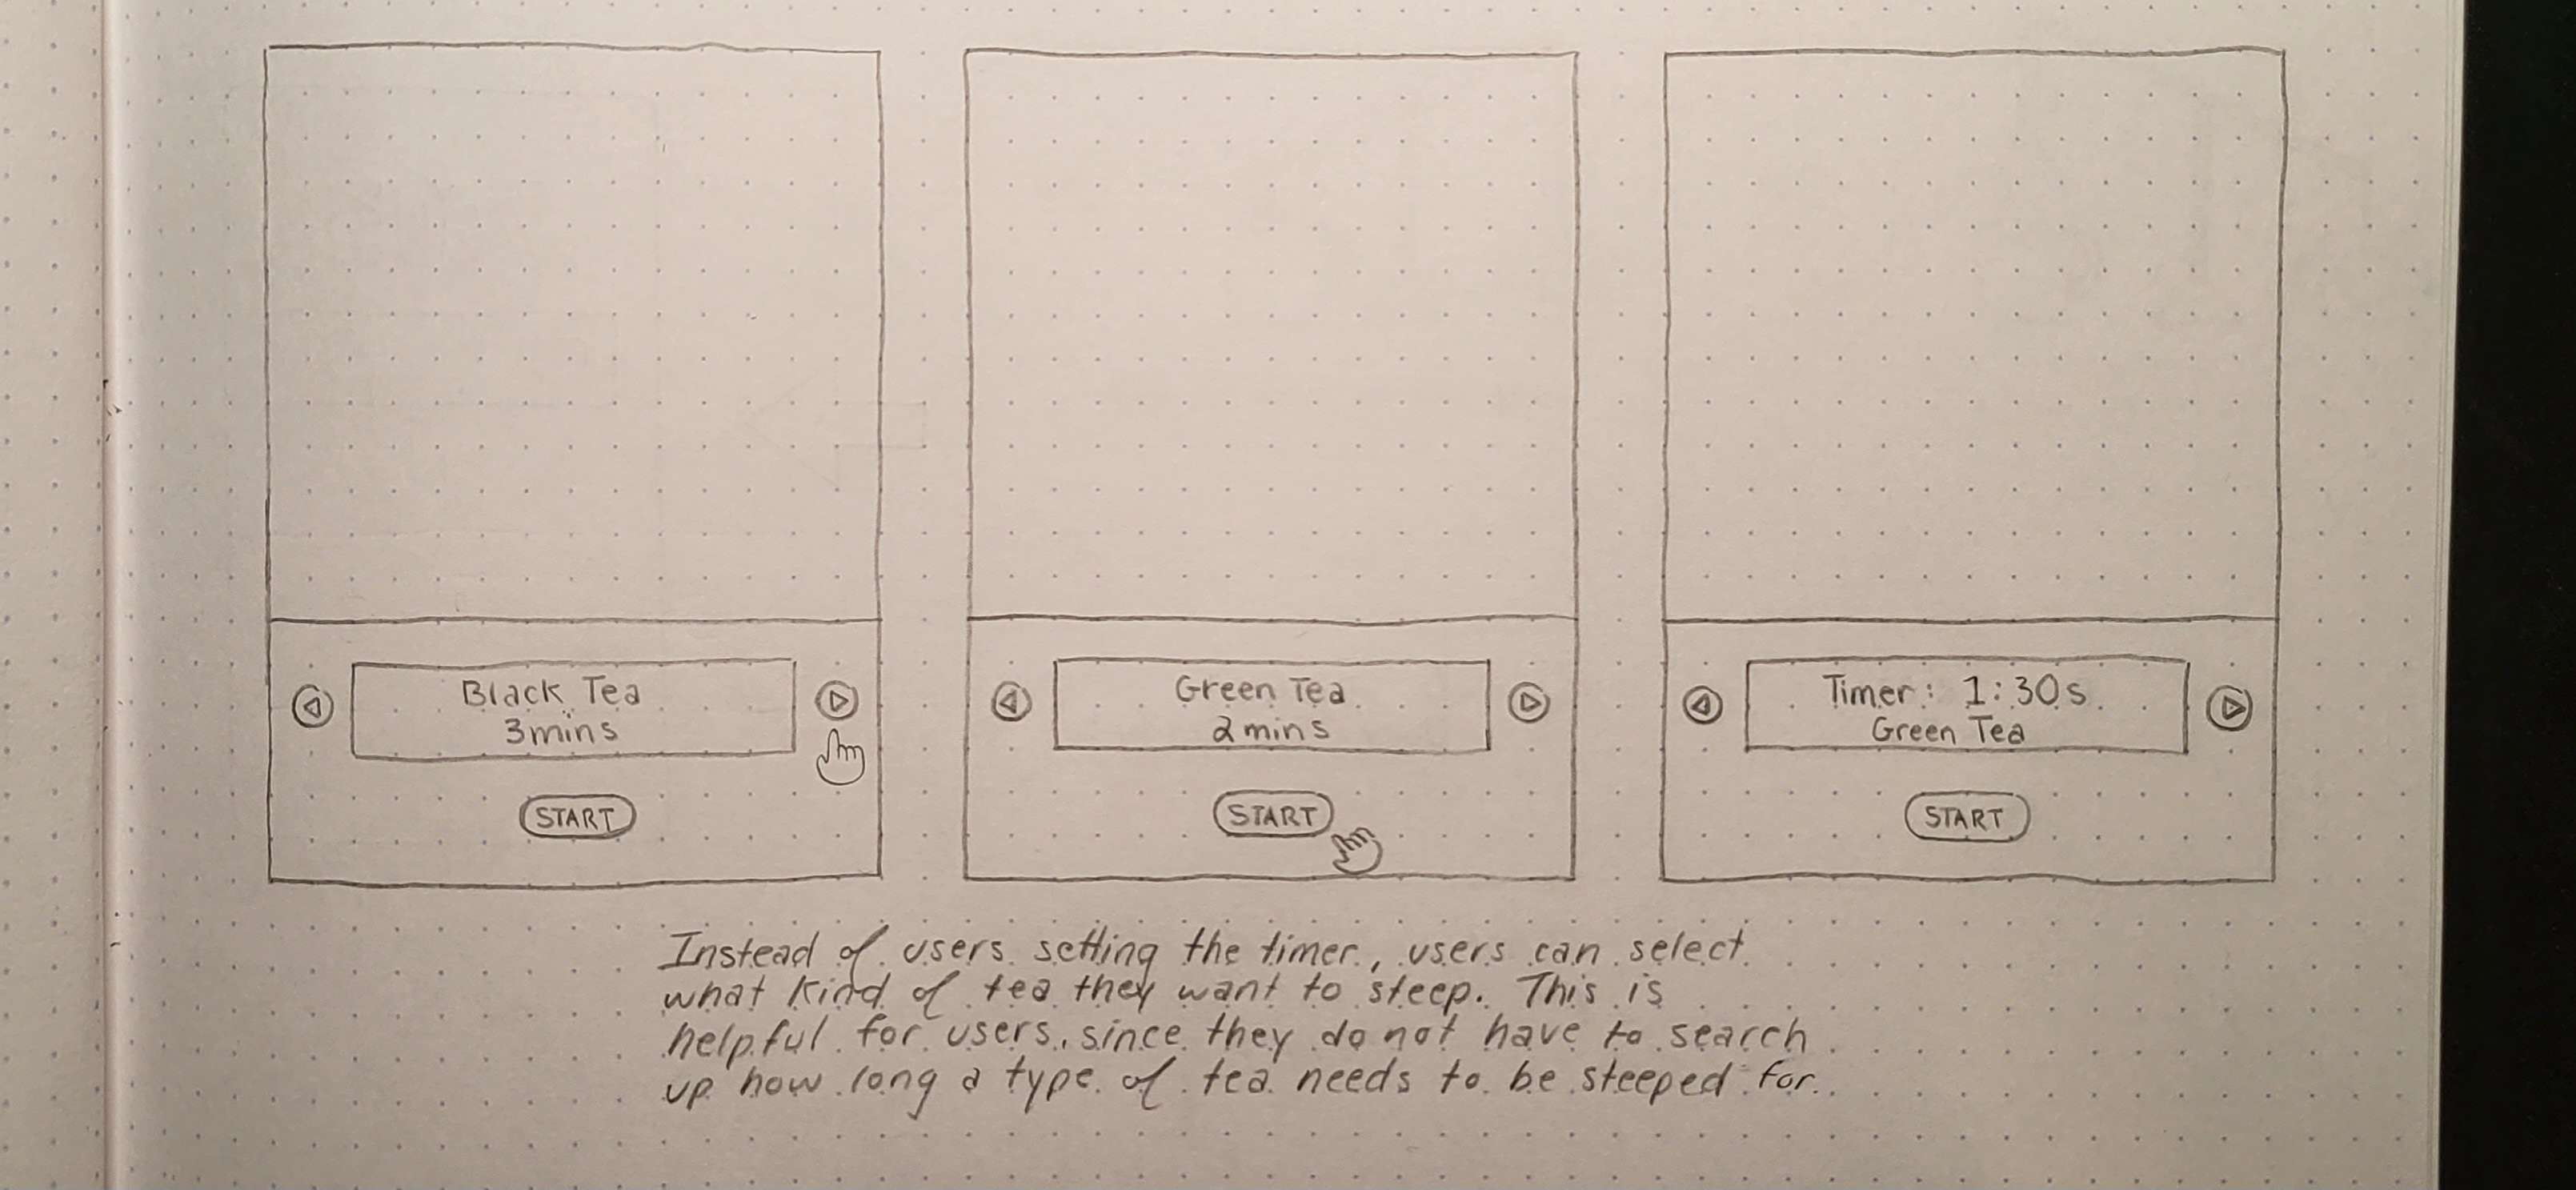 Black Tea
3mins
START
Green Tea
2mins
START
Timer: 1:30s
Green Tea
START
Instead of users setting the timer, users can select
what kind of tea they want to steep. This is
helpful for users, since they do not have to search
up how long a type of tea needs to be steeped for.